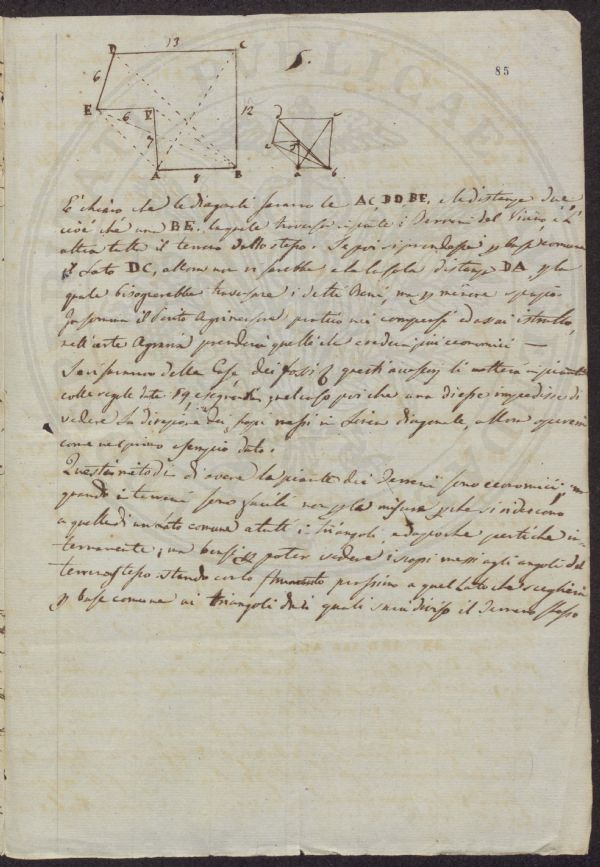 D 13 C 5. 85
6 12
E 6 F d c
7 e f
A 8 B a b
È chiaro che le diagonali saranno le AC BD BE, e le distanze due
cioè che una BE, la quale traversa i Terreni del Vicino, e l'
altra tutte il terreno dello stesso. Se poi si prendesse p base comune
il Lato DC, allora non vi sarebbe che la sola distanza DA, p la
quale bisognerebbe traversare i detti Beni, ma p minore spazio.
il Perito Agrimensore pratico nei ed assai istrutto,
nell'arte Agraria prenderà quelle che crederà più economici —
Se vi saranno delle Case dei fossi questi li metterà in pianta
colle regole date qualcuno poi che una di esse impedisse di
vedere la direzione dei scopi messi in Linea diagonale, allora
come nel primo esempio dato.
Questi metodi di avere la pianta dei Terreni sono economici,
quando i terreni sono la misura si riducono
a quelle di un lato comune a tutti i triangoli, e da poche pertiche in-
ternamente; ma bensì p poter vedere i scopi messi agli angoli del
terreno stesso stando collo prossimo a quel Lato che sceglierà
p base comune ai triangoli dai quali sarà diviso il Terreno stesso